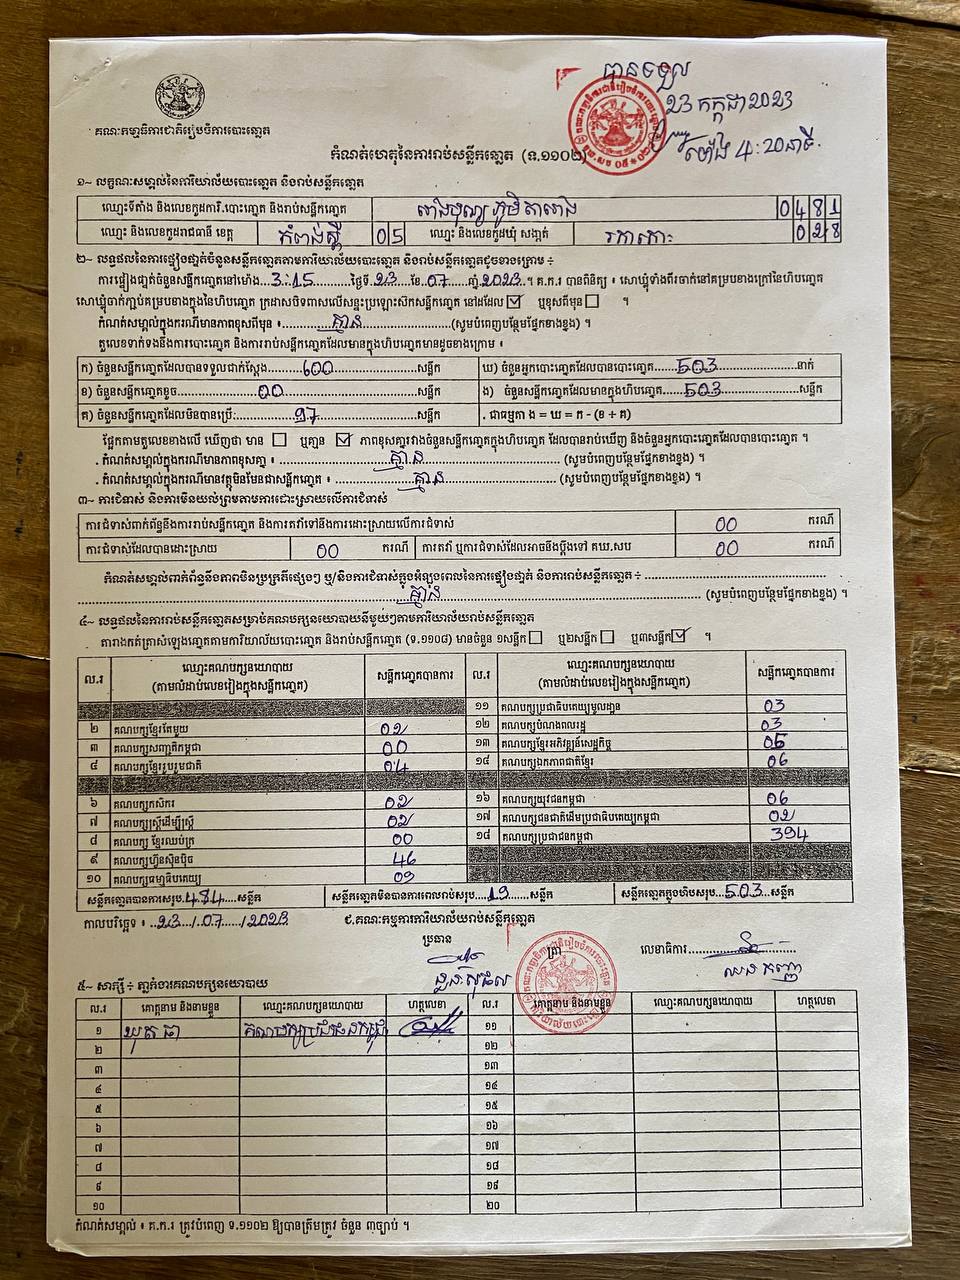 បានទទួល
23 កក្កដា 2023
ម៉ោង 4:20នាទី.
គណៈកម្មាធិការជាតិរៀបចំការបោះឆ្នោត
កំណត់ហេតុនៃការរាប់សន្លឹកឆ្នោត (ទ.១១០២)
១~ លក្ខណៈសម្គាល់នៃការិយាល័យបោះឆ្នោត និងរាប់សន្លឹកឆ្នោត
ឈ្មោះទីតាំង និងលេខកូដការិ.បោះឆ្នោត និងរាប់សន្លឹកឆ្នោត ភូមិ 0481
ឈ្មោះ និងលេខកូដរាជធានី ខេត្ត កំពង់ស្ពឺ 05 ឈ្មោះ និងលេខកូដឃុំ សង្កាត់ រកាកោះ 028
២~ លទ្ធផលនៃការផ្ទៀងផ្ទាត់ចំនួនសន្លឹកឆ្នោតតាមការិយាល័យបោះឆ្នោត និងរាប់សន្លឹកឆ្នោតដូចខាងក្រោម ÷
ការផ្ទៀងផ្ទាត់ចំនួនសន្លឹកឆ្នោតនៅម៉ោង...3:15......ថ្ងៃទី.23...ខែ.07....ឆ្នាំ.2023..។ គ.ក.រ បានពិនិត្យ ៖ សោឃ្លុំទាំងពីរចាក់នៅគម្របខាងក្រៅនៃហិបឆ្នោត
សោឃ្លុំចាក់ភ្ជាប់គម្របខាងក្នុងនៃហិបឆ្នោត ក្រដាសបិទពាសលើសន្ទះប្រឡោះសិកសន្លឹកឆ្នោត នៅដដែល ☑ ឬខុសពីមុន☐ ។
កំណត់សម្គាល់ក្នុងករណីមានភាពខុសពីមុន ៖........គ្មាន........(សូមបំពេញបន្ថែមផ្នែកខាងខ្នង) ។
តួលេខទាក់ទងនឹងការបោះឆ្នោត និងការរាប់សន្លឹកឆ្នោតដែលមានក្នុងហិបឆ្នោតមានដូចខាងក្រោម ៖
ក) ចំនួនសន្លឹកឆ្នោតដែលបានទទួលជាក់ស្តែង.......600.......សន្លឹក ឃ) ចំនួនអ្នកបោះឆ្នោតដែលបានបោះឆ្នោត......503......នាក់
ខ) ចំនួនសន្លឹកឆ្នោតខូច.......00.......សន្លឹក ង) ចំនួនសន្លឹកឆ្នោតដែលមានក្នុងហិបឆ្នោត......503......សន្លឹក
គ) ចំនួនសន្លឹកឆ្នោតដែលមិនបានប្រើ:.......97.......សន្លឹក . ជាធម្មតា ង = ឃ = ក - (ខ + គ)
ផ្អែកតាមតួលេខខាងលើ ឃើញថា មាន ☐ ឬគ្មាន ☑ ភាពខុសគ្នារវាងចំនួនសន្លឹកឆ្នោតក្នុងហិបឆ្នោត ដែលបានរាប់ឃើញ និងចំនួនអ្នកបោះឆ្នោតដែលបានបោះឆ្នោត ។
. កំណត់សម្គាល់ក្នុងករណីមានភាពខុសគ្នា ៖ ........គ្មាន........ (សូមបំពេញបន្ថែមផ្នែកខាងខ្នង) ។
. កំណត់សម្គាល់ក្នុងករណីមានវត្ថុមិនមែនជាសន្លឹកឆ្នោត ៖ ........គ្មាន........ (សូមបំពេញបន្ថែមផ្នែកខាងខ្នង) ។
៣~ ការជំទាស់ និងការមិនយល់ព្រមតាមការដោះស្រាយលើការជំទាស់
ការជំទាស់ពាក់ព័ន្ធនឹងការរាប់សន្លឹកឆ្នោត និងការតវ៉ាទៅនឹងការដោះស្រាយលើការជំទាស់ 00 ករណី
ការជំទាស់ដែលបានដោះស្រាយ 00 ករណី ការតវ៉ា ឬការជំទាស់ដែលអាចនឹងប្តឹងទៅ គឃ.សប 00 ករណី
កំណត់សម្គាល់ពាក់ព័ន្ធនឹងភាពមិនប្រក្រតីផ្សេងៗ ឬ/និងការជំទាស់ក្នុងអំឡុងពេលនៃការផ្ទៀងផ្ទាត់ និងការរាប់សន្លឹកឆ្នោត ÷ ........
........គ្មាន........ (សូមបំពេញបន្ថែមផ្នែកខាងខ្នង) ។
៤~ លទ្ធផលនៃការរាប់សន្លឹកឆ្នោតសម្រាប់គណបក្សនយោបាយនីមួយៗតាមការិយាល័យរាប់សន្លឹកឆ្នោត
តារាងកត់ត្រាសំឡេងឆ្នោតតាមការិយាល័យបោះឆ្នោត និងរាប់សន្លឹកឆ្នោត (ទ.១១០៨) មានចំនួន ១សន្លឹក☐ ឬ២សន្លឹក☐ ឬ៣សន្លឹក☑ ។
ល.រ ឈ្មោះគណបក្សនយោបាយ (តាមលំដាប់លេខរៀងក្នុងសន្លឹកឆ្នោត) សន្លឹកឆ្នោតបានការ
២ គណបក្សខ្មែរតែមួយ 02
៣ គណបក្សសញ្ជាតិកម្ពុជា 00
៤ គណបក្សខ្មែររួបរួមជាតិ 04
៦ គណបក្សកសិករ 02
៧ គណបក្សស្ត្រីដើម្បីស្ត្រី 02
៨ គណបក្ស ខ្មែរឈប់ក្រ 00
៩ គណបក្សហ៊្វុនស៊ិនប៉ិច 46
១០ គណបក្សធម្មាធិបតេយ្យ 09
ល.រ ឈ្មោះគណបក្សនយោបាយ (តាមលំដាប់លេខរៀងក្នុងសន្លឹកឆ្នោត) សន្លឹកឆ្នោតបានការ
១១ គណបក្សប្រជាធិបតេយ្យមូលដ្ឋាន 03
១២ គណបក្សបំណងពលរដ្ឋ 03
១៣ គណបក្សខ្មែរអភិវឌ្ឍន៍សេដ្ឋកិច្ច 05
១៤ គណបក្សឯកភាពជាតិខ្មែរ 06
១៦ គណបក្សយុវជនកម្ពុជា 06
១៧ គណបក្សជនជាតិដើមប្រជាធិបតេយ្យកម្ពុជា 02
១៨ គណបក្សប្រជាជនកម្ពុជា 394
សន្លឹកឆ្នោតបានការសរុប.484....សន្លឹក សន្លឹកឆ្នោតមិនបានការពេលរាប់សរុប..19...សន្លឹក សន្លឹកឆ្នោតក្នុងហិបសរុប...503...សន្លឹក
កាលបរិច្ឆេទ ៖ ..23../.07..../2023 ជ.គណៈកម្មការការិយាល័យរាប់សន្លឹកឆ្នោត
ប្រធាន ត្រា លេខាធិការ
៥~ សាក្សី ÷ ភ្នាក់ងារគណបក្សនយោបាយ
ល.រ គោត្តនាម និងនាមខ្លួន ឈ្មោះគណបក្សនយោបាយ ហត្ថលេខា ល.រ គោត្តនាម និងនាមខ្លួន ឈ្មោះគណបក្សនយោបាយ ហត្ថលេខា
១ ឃុត ធា គណបក្សប្រជាជនកម្ពុជា ១១
២ ១២
៣ ១៣
៤ ១៤
៥ ១៥
៦ ១៦
៧ ១៧
៨ ១៨
៩ ១៩
១០ ២០
កំណត់សម្គាល់ ៖ គ.ក.រ ត្រូវបំពេញ ទ.១១០២ ឱ្យបានត្រឹមត្រូវ ចំនួន ៣ច្បាប់ ។